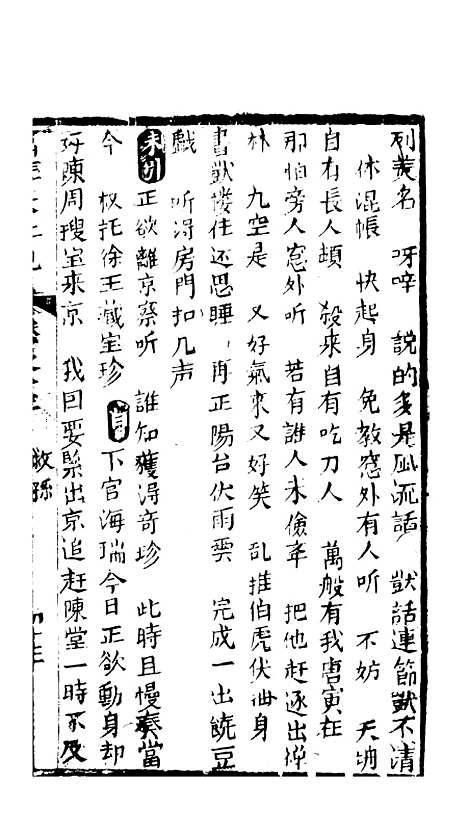 列羙名 呀啐 説的多是風流話 獃話連節獃不清
休混帳 快起身 免教窓外有人听 不妨 天坍
自有長人頂 殺來自有吃刀人 萬般有我唐寅在
那怕旁人窓外听 若有誰人來 把他赶逐出
林 九空是 又好氣來又好笑 乱推伯虎伏身
書獃摟住还思睡 再正陽台伏雨雲 完成一出饒豆
戯 听得房門扣几声
末引 正欲離京察听 誰知獲得奇珍 此時且慢奏當
今 权托徐王藏宝珍 白 下官海瑞今日正欲動身却
好陳周瑏宝來京 我曰要緊出京追赶陳堂一時不及